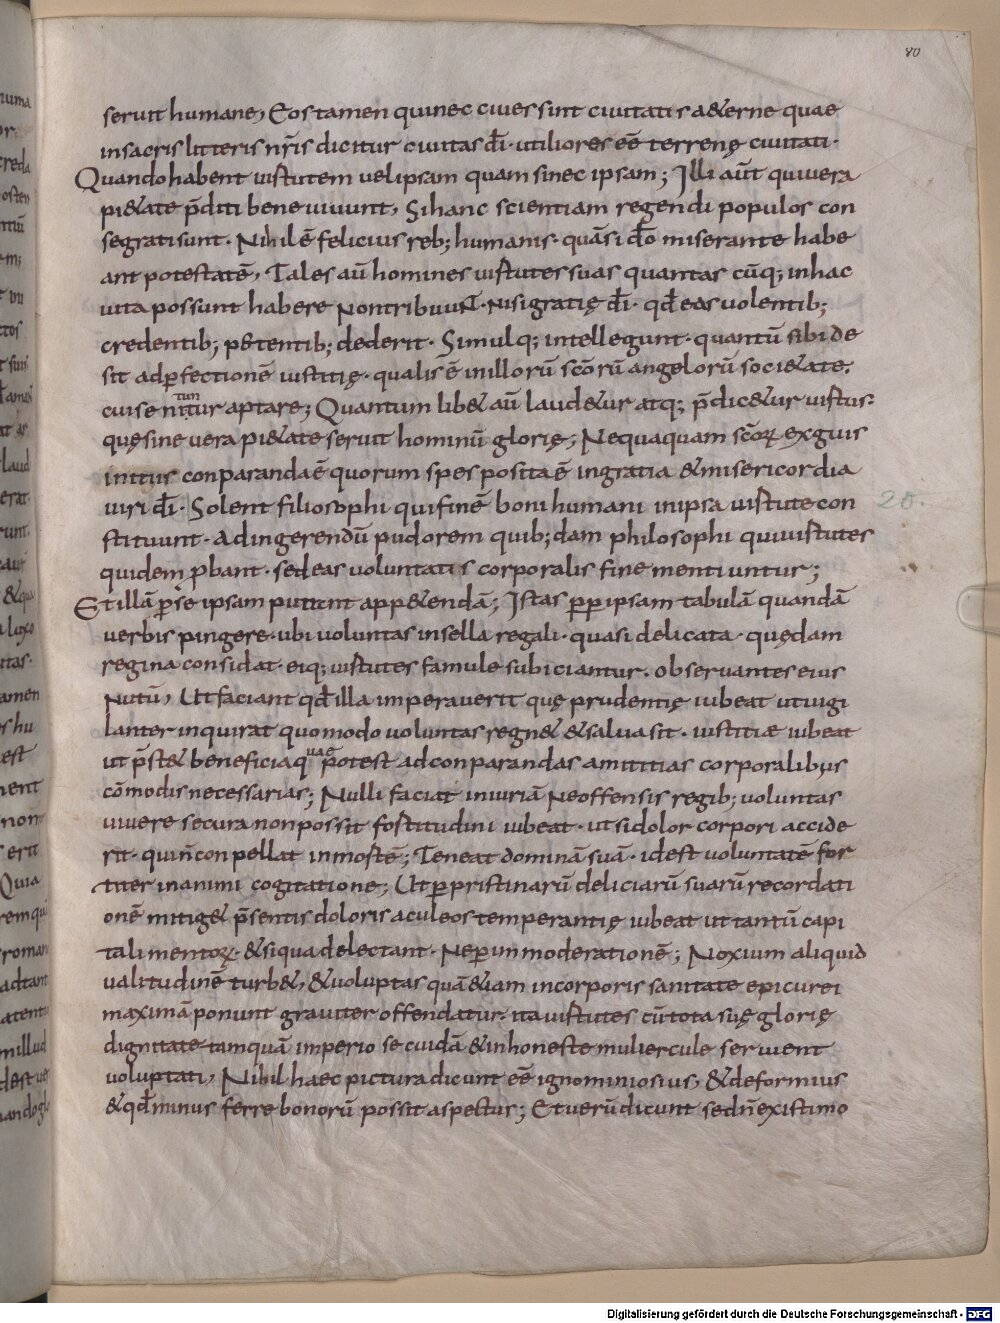 80
seruit humane, Eos tamen qui nec ciues sunt ciuitatis a&erne quae
in sacris litteris nr̄is dicitur ciuitas dī · utiliores eē̄ terrenę ciuitati ·
Quando habent uirtutem uel ipsam quam sinec ipsam; Illi aūt qui uera
pi&ate p̄diti bene uiuunt, Si hanc scientiam regendi populos con
segrati sunt · Nihil ē felicius reb; humanis · quā si dō miserante habe
ant potestatē, Tales aū homines uirtutes suas quantas cūq; in hac
uita possunt habere Non tribuunt · Nisi gratię dī · qd̄ eas uolentib;
credentib; petentib; dederit · Simulq; intellegunt · quantū sibi de
sit ad ꝑfectionē iustitię · qualis ē in illorū scōrū angelorū soci&ate,
cui se nituntur aptare; Quantum lib& aū laud&ur atq; p̄dic&ur uirtus ·
quę sine uera pi&ate seruit hominū glorię; Nequaquam scōꝝ exguis
initiis conparanda ē quorum spes posita ē in gratia & misericordia
uiri dī · Solent filiosophi qui finē boni humani in ipsa uirtute con
20.
stituunt · ad ingerendū pudorem quib;dam philosophi qui uirtutes
quidem ꝓbant · sed eas uoluntatis corporalis fine mentiuntur;
Et illā ꝑ se ipsam putant app&endā; Istas ꝓꝑ ipsam tabulā quandā
uerbis pingere · ubi uoluntas in sella regali · quasi delicata · quędam
regina considat · eiq; uirtutes famule subiciantur · obseruantes eius
Nutū, Ut faciant qd̄ illa imperauerit quę prudentię iubeat ut uigi
lanter inquirat quomodo uoluntas regn& & salua sit · iustitiæ iubeat
ut p̄st& beneficia quae potest ad conparandas amititias corporalibus
cōmodis necessarias; Nulli faciat iniuriā Ne offensis regib; uoluntas
uiuere secura non possit fortitudini iubeat · ut si dolor corpori accide
rit · qui n̄ conpellat in mortē; Teneat dominā suā · idest uoluntatē for
titer in animi cogitatione; Ut ꝑ pristinarū deliciarū suarū recordati
onē mitig& p̄sentis doloris aculeos temperantię iubeat ut tantū capi
tali mentoꝝ · & siqua delectant · Ne ꝑ inmoderationē; Noxium aliquid
ualitudinē turb&, & uoluptas quā &iam in corporis sanitate epicurei
maximā ponunt grauiter offendatur ita uirtutes cū tota suę glorię
dignitate tamquā imperio se cuidā & inhoneste muliercule seruient
uoluptati, Nihil haec pictura dicunt eē̄ ignominiosius, & deformius
& qd̄ minus ferre bonorū possit aspectus; Et uerū dicunt sed n̄ existimo
Digitalisierung gefördert durch die Deutsche Forschungsgemeinschaft - DFG